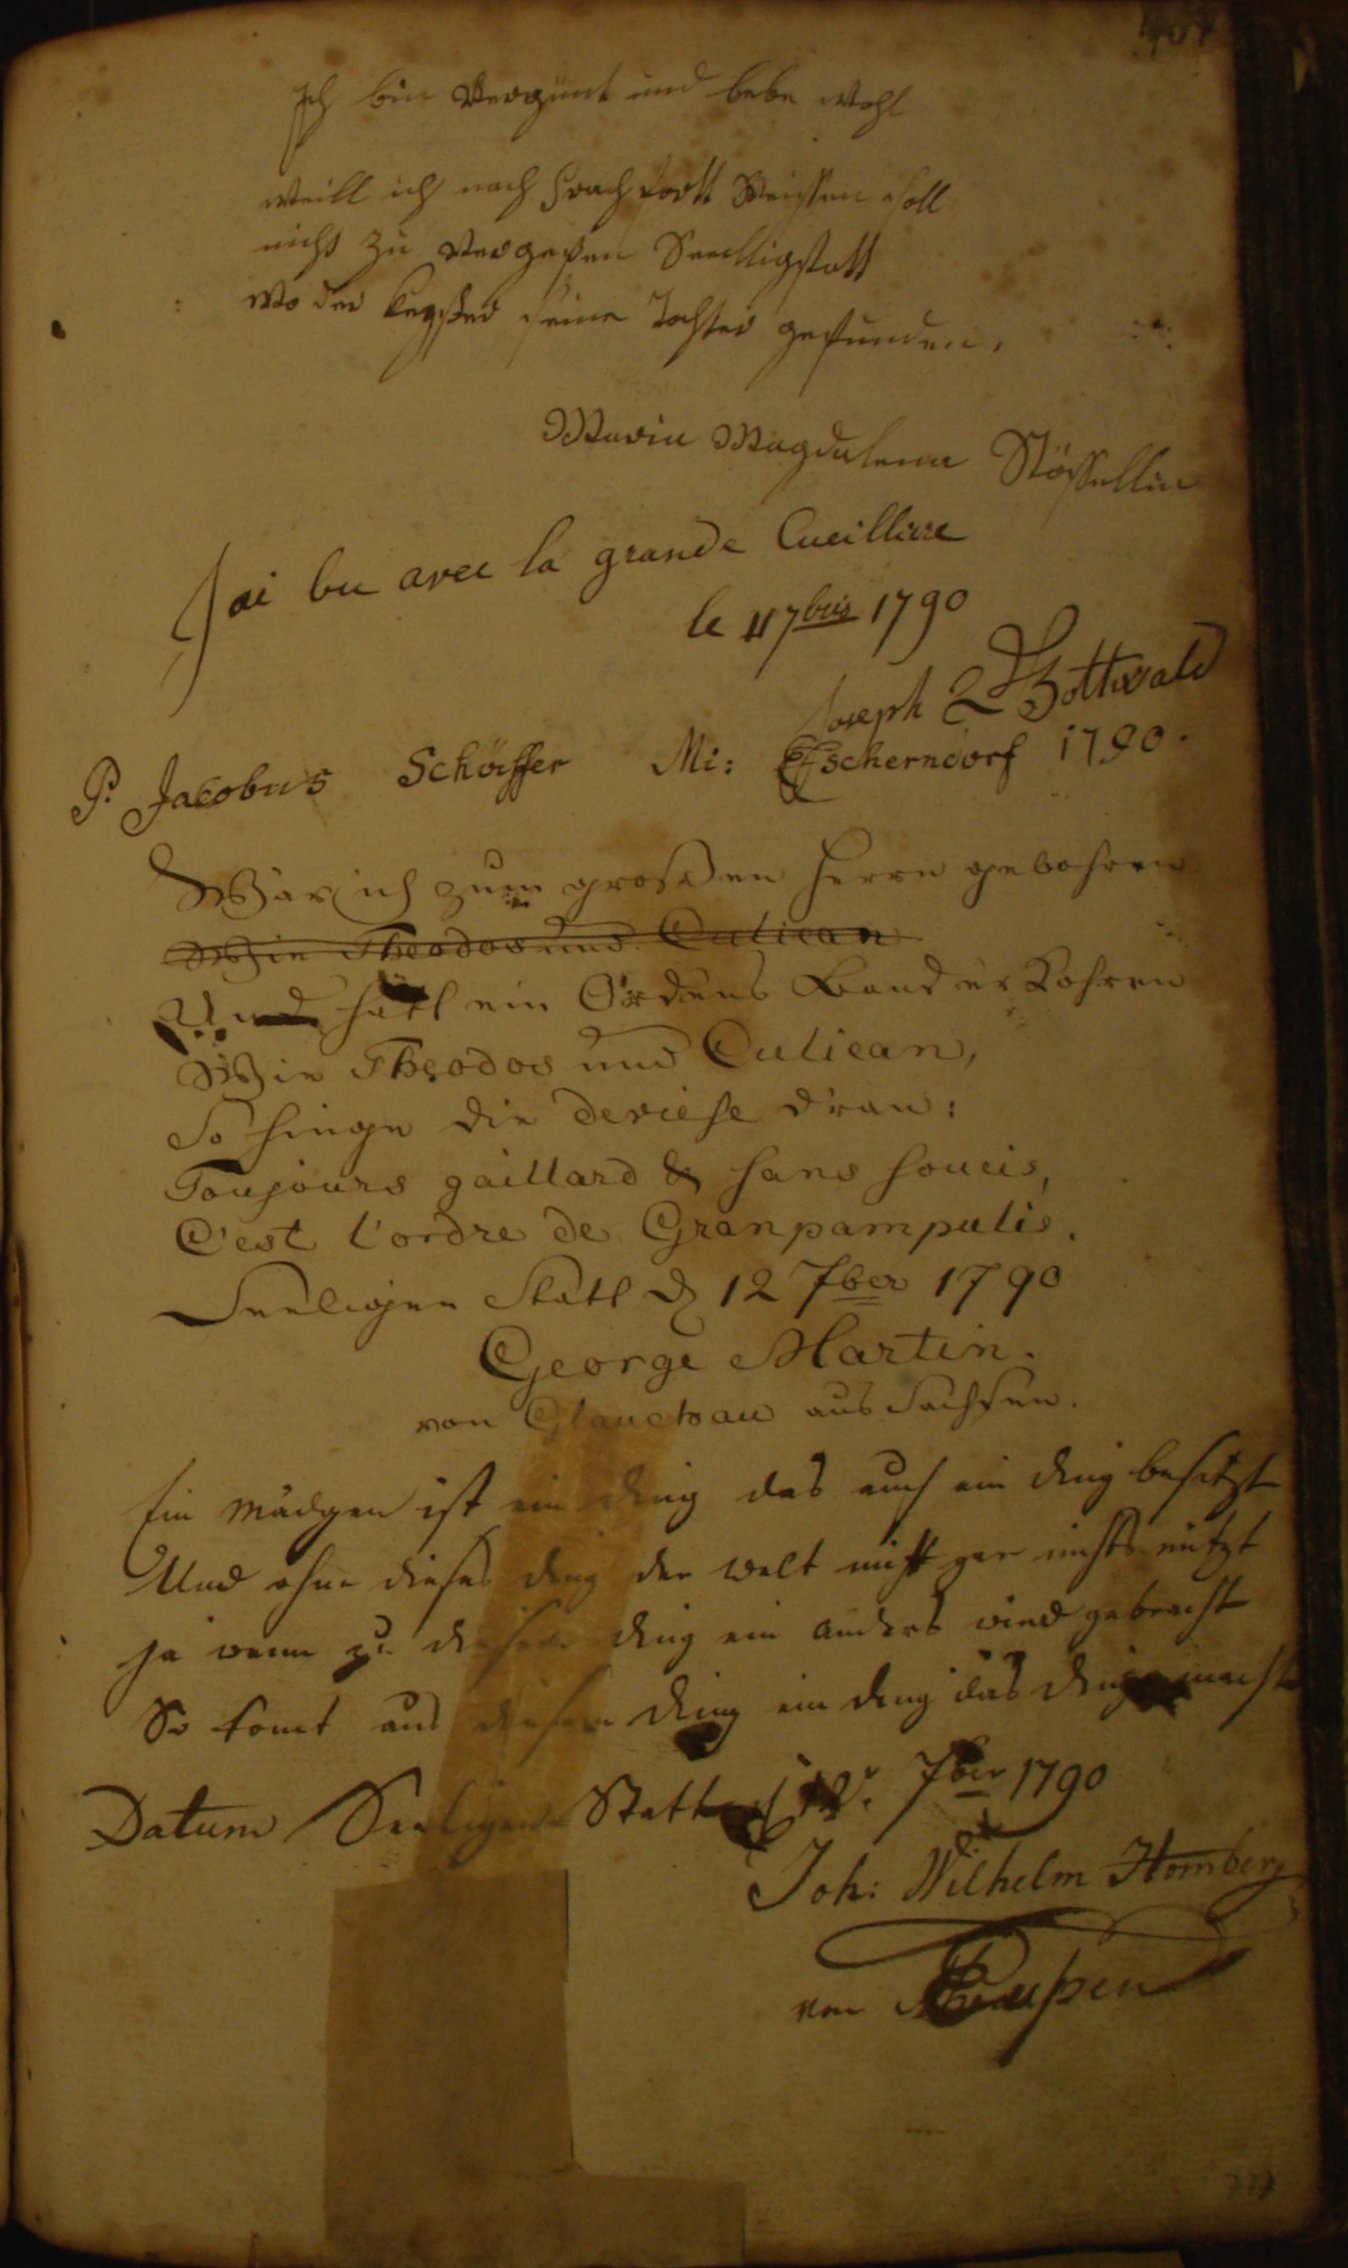 407
Ich bin Vergünt und lebe wohl
weill ich nach Franckfortt Reissen soll
nicht zu Vergeßen Seelligstatt
wo der Keyßer seine Tochter gefunden.
Maria Magdalena Stössellin
J'ai bu avec la grande Cueilliere
le 11 7bris 1790
Joseph Gottwald
P. Jacobus Schöffer Mi: Escherndorf 1790.
Wär ich zum großen Herrn gebohren
Wie Theodos und Culican
Und hätt ein Ordens Band erkohren
Wie Theodos und Culican,
So hinge die deviese dran:
Toujours gaillard & sans soucis,
C'est l'ordre de Granpampulis.
Seeligen Statt d 12 7ber 1790
George Martin.
von Glauchau aus Sachsen.
Ein Mädgen ist ein ding das auch ein ding besitzt
Und ohne dieses ding der welt nicht gar nichts nützt
ja wenn zu diesem ding ein anders wird gebracht
So komt aus diesem ding ein ding das dinge macht
Datum Seeligen Statt d 12. 7ber 1790
Joh: Wilhelm Homberg
von